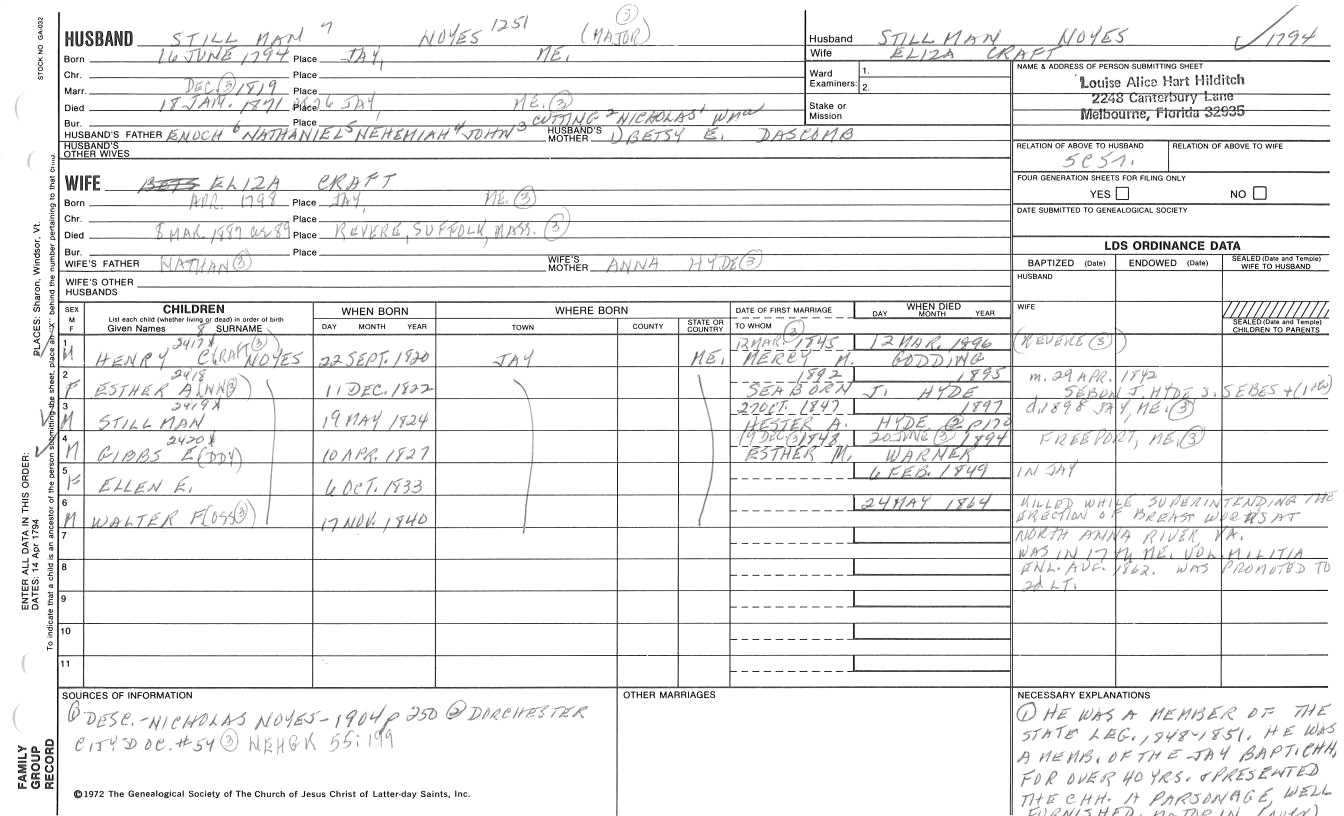 STOCK NO. GA-032
HUSBAND STILLMAN 7 NOYES 1251 (MAJOR) ③
Born 16 JUNE 1794 Place JAY, ME.
Chr. Place
Marr. DEC. ③ 1819 Place
Died 18 JAN. 1871 Place JAY ME. ③
Bur. Place
HUSBAND'S FATHER ENOCH 6 NATHANIEL 5 NEHEMIAH 4 JOHN 3 CUTTING 2 NICHOLAS 1 WM
HUSBAND'S MOTHER 1) BETSY E. DASCOMB
HUSBAND'S OTHER WIVES
WIFE ELIZA CRAFT
Born APR. 1798 Place JAY, ME. ③
Chr. Place
Died 8 MAR. 1887 ae 89 Place REVERE, SUFFOLK, MASS. ③
Bur. Place
WIFE'S FATHER NATHAN ③
WIFE'S MOTHER ANNA HYDE ③
WIFE'S OTHER HUSBANDS
Husband STILLMAN NOYES 1794
Wife ELIZA CRAFT
Ward Examiners: 1. 2.
Stake or Mission
NAME & ADDRESS OF PERSON SUBMITTING SHEET
Louise Alice Hart Hilditch
2248 Canterbury Lane
Melbourne, Florida 32935
RELATION OF ABOVE TO HUSBAND
RELATION OF ABOVE TO WIFE
FOUR GENERATION SHEETS FOR FILING ONLY
YES NO
DATE SUBMITTED TO GENEALOGICAL SOCIETY
LDS ORDINANCE DATA
BAPTIZED (Date) ENDOWED (Date) SEALED (Date and Temple) WIFE TO HUSBAND
HUSBAND
WIFE
SEALED (Date and Temple) CHILDREN TO PARENTS
SEX M F
CHILDREN
List each child (whether living or dead) in order of birth
Given Names 8 SURNAME
WHEN BORN
DAY MONTH YEAR
WHERE BORN
TOWN COUNTY STATE OR COUNTRY
DATE OF FIRST MARRIAGE
TO WHOM
WHEN DIED
DAY MONTH YEAR
1 M 2417x HENRY C(RAFT ③) NOYES 22 SEPT. 1820 JAY ME. 12 MAR. ③ 1845 MERCY M. GODDING 12 MAR. 1896 (REVERE ③)
2 F 2418 ESTHER A(NN ③) 11 DEC. 1822 1892 SEABORN J. HYDE 1895 m. 29 APR. 1842
SEBON J. HYDE
3 M 2419x STILLMAN 19 MAY 1824 27 OCT. 1847 HESTER A. HYDE 1897 d. 1898 JAY, ME. ③
4 M 2420x GIBBS E(DDY) 10 APR. 1827 19 DEC ③ 1848 ESTHER M. WARNER 20 JUNE ③ 1894 FREEPORT, ME. ③
5 F ELLEN E. 6 OCT. 1833 6 FEB. 1849 IN JAY
6 M WALTER F(OSS ③) 17 NOV. 1840 24 MAY 1864 KILLED WHILE SUPERINTENDING THE
ERECTION OF BREAST WORKS AT
NORTH ANNA RIVER, VA.
WAS IN 17th ME. VOL. MILITIA
ENL. AUG. 1862. WAS PROMOTED TO
2d LT.
7
8
9
10
11
SOURCES OF INFORMATION
① DESC.-NICHOLAS NOYES-1904 p 250 ② DORCHESTER
CITY DOC. #54 ③ NEHGR 55:199
©1972 The Genealogical Society of The Church of Jesus Christ of Latter-day Saints, Inc.
OTHER MARRIAGES
NECESSARY EXPLANATIONS
① HE WAS A MEMBER OF THE
STATE LEG. 1848-1851. HE WAS
A MEMB. OF THE JAY BAPT. CHH,
FOR OVER 40 YRS. & PRESENTED
THE CHH. A PARSONAGE, WELL
FURNISHED.
ENTER ALL DATA IN THIS ORDER:
DATES: 14 Apr 1794
PLACES: Sharon, Windsor, Vt.
To indicate that a child is an ancestor of the person submitting the sheet, place an "X" behind the number pertaining to that child.
FAMILY GROUP RECORD